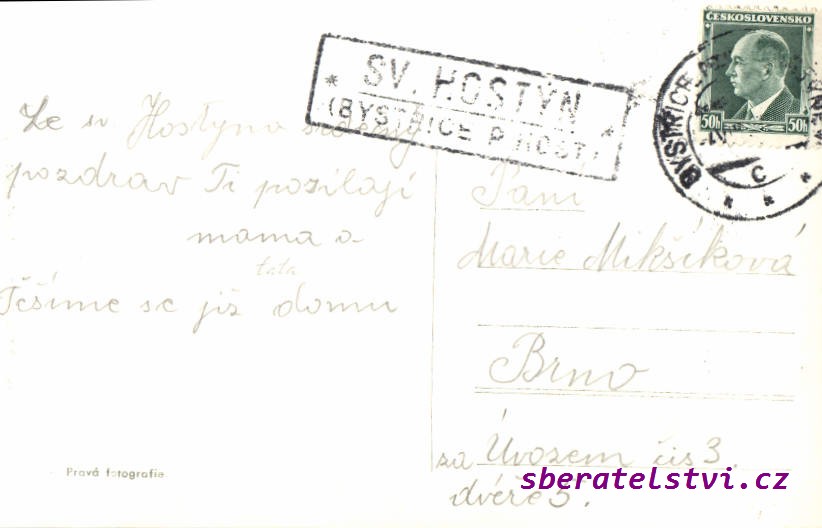 SV. HOSTÝN
(BYSTŘICE P. HOST.)
ČESKOSLOVENSKO
50h 50h
BYSTŘICE
C
Ze sv. Hostýna srdečný
pozdrav Ti posílají
mama a
tata
Těšíme se již domu
Paní
Marie Mikšíková
Brno
za Úvozem čís 3
dvéře 5.
Pravá fotografie
sberatelstvi.cz